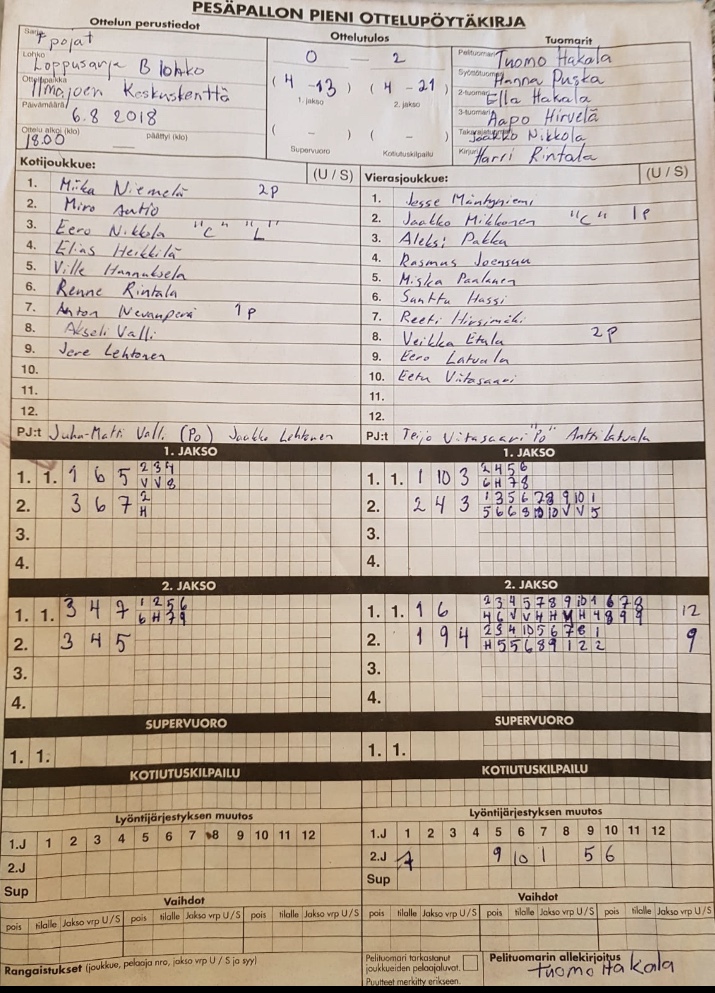 PESÄPALLON PIENI OTTELUPÖYTÄKIRJA
Ottelun perustiedot
Ottelutulos
Tuomarit
Sarja
pojat
Lohko
Loppusarja B lohko
Ottelupaikka
Ilmajoen Keskuskenttä
Päivämäärä
6.8 2018
Ottelu alkoi (klo) päättyi (klo)
18.00
0 – 2
( 4 -13 ) ( 4 - 21 )
1. jakso 2. jakso
( - ) ( - )
Supervuoro Kotiutuskilpailu
Pelituomari Tuomo Hakala
Syöttötuomari Hanna Puska
2-tuomari Ella Hakala
3-tuomari Aapo Hirvelä
Takarajatuomari Jaakko Nikkola
Kirjuri Harri Rintala
Kotijoukkue: (U / S)
1. Miika Niemelä 2P
2. Miro Autio
3. Eero Nikkola "C" "L"
4. Elias Heikkilä
5. Ville Hannuksela
6. Renne Rintala
7. Anton Nevanperä 1P
8. Akseli Valli
9. Jere Lehtonen
10.
11.
12.
PJ:t Juha-Matti Valli (Po) Jaakko Lehtonen
Vierasjoukkue: (U / S)
1. Jesse Mäntyniemi
2. Jaakko Mikkonen "C" 1P
3. Aleksi Pakka
4. Rasmus Joensuu
5. Miska Paalanen
6. Santtu Hassi
7. Reeti Hirsimäki
8. Veikka Etula 2P
9. Eero Latvala
10. Eetu Viitasaari
11.
12.
PJ:t Teijo Viitasaari "Po" Antti Latvala
1. JAKSO
1. 1. 1 6 5 2 3 4
V V 8
2. 3 6 7 2
H
3.
4.
1. JAKSO
1. 1. 1 10 3 2 4 5 6
6 H 7 8
2. 2 4 3 1 3 5 6 7 8 9 10 1
5 6 6 8 10 10 V V 5
3.
4.
2. JAKSO
1. 1. 3 4 7 1 2 5 6
6 H 7 9
2. 3 4 5
3.
4.
2. JAKSO
1. 1. 1 6 2 3 4 5 7 8 9 10 1 6 7 8 12
4 6 V V 4 H H 4 8 9 9
2. 1 9 4 2 3 4 10 5 6 7 8 1 9
H 5 5 6 8 9 1 2 2
3.
4.
SUPERVUORO
1. 1.
SUPERVUORO
1. 1.
KOTIUTUSKILPAILU
KOTIUTUSKILPAILU
Lyöntijärjestyksen muutos
1.J 1 2 3 4 5 6 7 8 9 10 11 12
2.J
Sup
Lyöntijärjestyksen muutos
1.J 1 2 3 4 5 6 7 8 9 10 11 12
2.J 7 9 10 1 5 6
Sup
Vaihdot
pois tilalle Jakso vrp U / S pois tilalle Jakso vrp U / S pois tilalle Jakso vrp U / S
Vaihdot
pois tilalle Jakso vrp U / S pois tilalle Jakso vrp U / S pois tilalle Jakso vrp U / S
Rangaistukset (joukkue, pelaaja nro, jakso vrp U / S ja syy)
Pelituomari tarkastanut
joukkueiden pelaajaluvat.
Puutteet merkitty erikseen.
Pelituomarin allekirjoitus
Tuomo Hakala